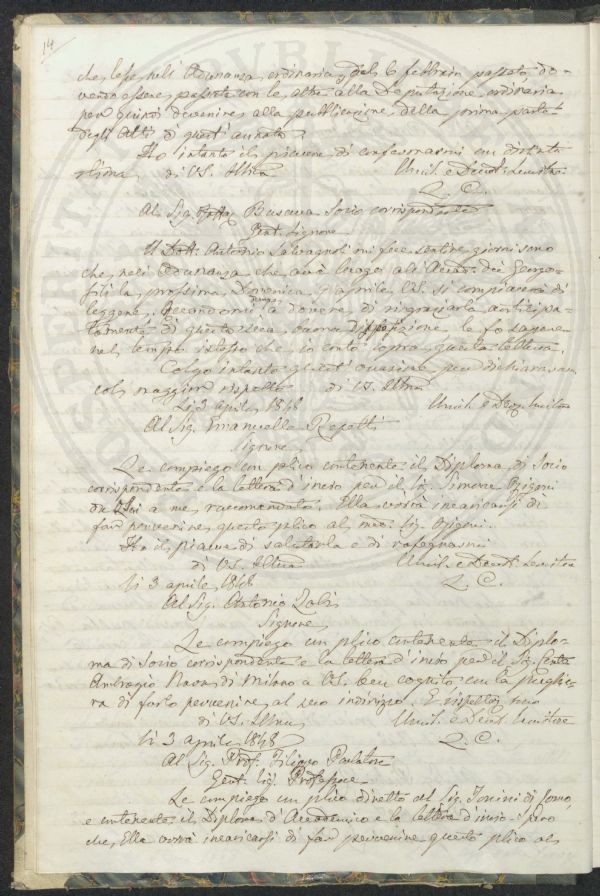 14
che lesse nell'Adunanza ordinaria del 6 febbraio passato do-
vendo essere passata con le altre alla Deputazione ordinaria
per quindi devenire alla pubblicazione della prima parte
degli Atti di quest'annata.
Ho intanto il piacere di confermarmi con distinta
stima di VS. Illma Umil. e Devot. Servitore
L. C.
Al Sig. Buscura Socio corrispondente
Gent. Signore
Il Dott. Antonio Salvagnoli mi fece sentire giorni sono
che nell'Adunanza che avrà luogo all'Accad. dei Georgo-
fili la prossima Domenica 9 aprile VS. si compiacerà di
leggere. Recandomi a dovere di ringraziarla anticipa-
tamente di questa sua buona disposizione, le fo sapere
nel tempo istesso che io conto sopra questa lettura.
Colgo intanto quest'occasione per dichiararmi
col maggior rispetto di VS. Illma
Li 3 aprile 1848 Umil. e Dev. Servitore
Al Sig. Emanuelle Repetti
Signore
Le compiego un plico contenente il Diploma di Socio
corrispondente e la lettera d'invio per il Sig. Simone
da Lei a me raccomandato. Ella vorrà incaricarsi di
far pervenire questo plico al med. Sig.
Ho il piacere di salutarla e di rassegnarmi
di VS. Illma Umil. e Devot. Servitore
li 3 aprile 1848 L. C.
Al Sig. Antonio Zobi
Signore
Le compiego un plico contenente il Diplo-
ma di Socio corrispondente e la lettera d'invio per il Sig. Conte
Ambrogio Nava di Milano a VS. ben cognito con la preghie-
ra di farlo pervenire al suo indirizzo. E rispettos. sono
di VS. Illma Umil. e Devot. Servitore
li 3 aprile 1848 L. C.
Al Sig. Prof. Filippo Parlatore
Gent. Sig. Professore
Le compiego un plico diretto al Sig. di Como,
e contenente il Diploma d'Accademico e la lettera d'invio. Spero
che Ella vorrà incaricarsi di far pervenire questo plico al